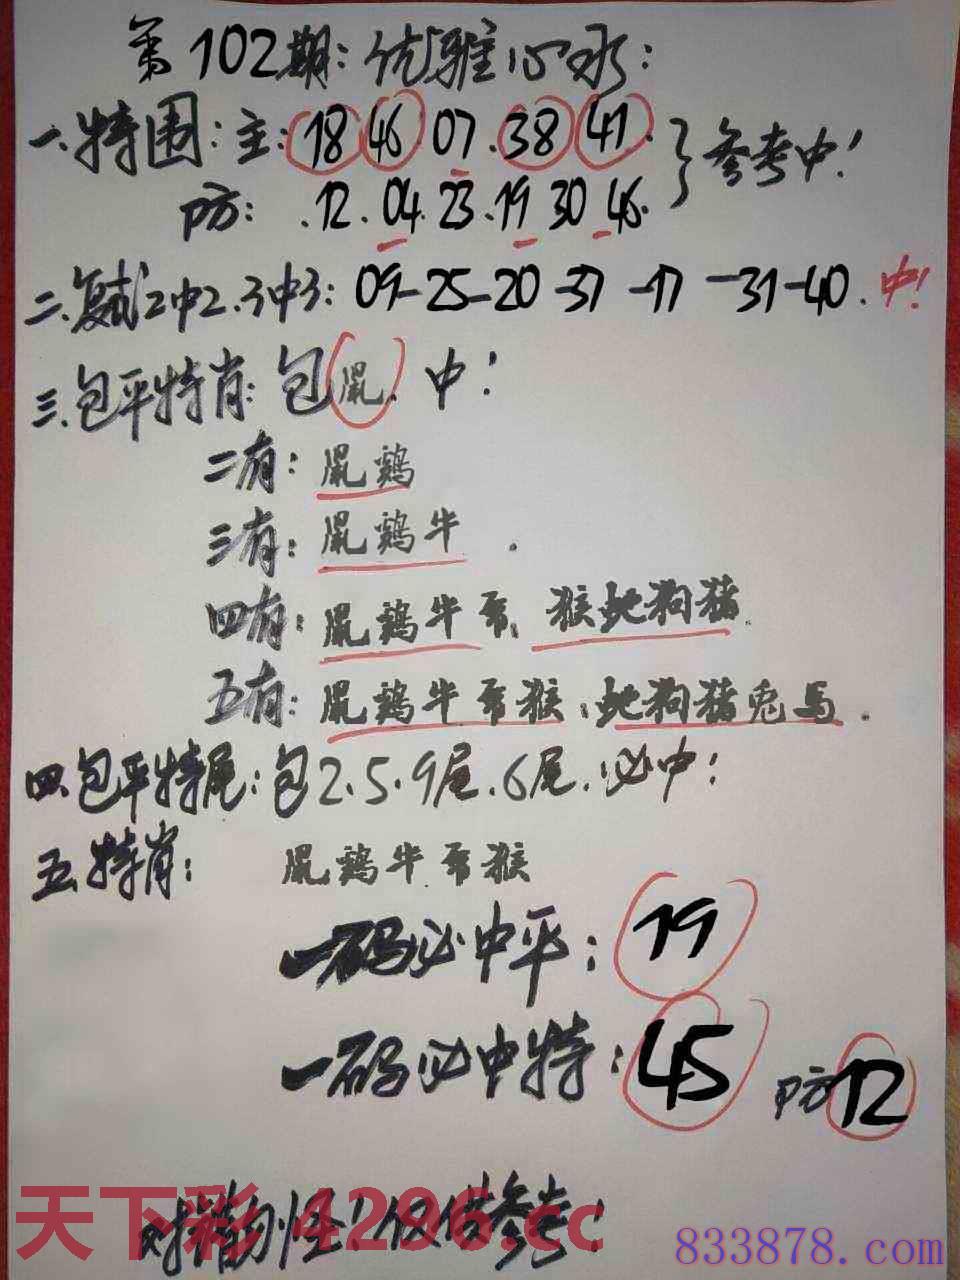 第102期:优雅心水:
一.特围:主:18 46.07.38.41.
防:.12.04.23.19 30 46.
}参考中!
二.复试2中2.3中3:09-25-20-37-17-31-40.中!
三.包平特肖:包鼠.中!
二有:鼠鸡
三有:鼠鸡牛.
四有:鼠鸡牛 猴蛇狗猪.
五有:鼠鸡牛 猴:蛇狗猪兔马.
四.包平特尾:包2.5.9尾.6尾.必中!
五.特肖:鼠鸡牛. 猴
一码必中平:19
一码必中特:45 防12
对错勿怪!仅供参考!
天下彩 4296.cc
833878.com